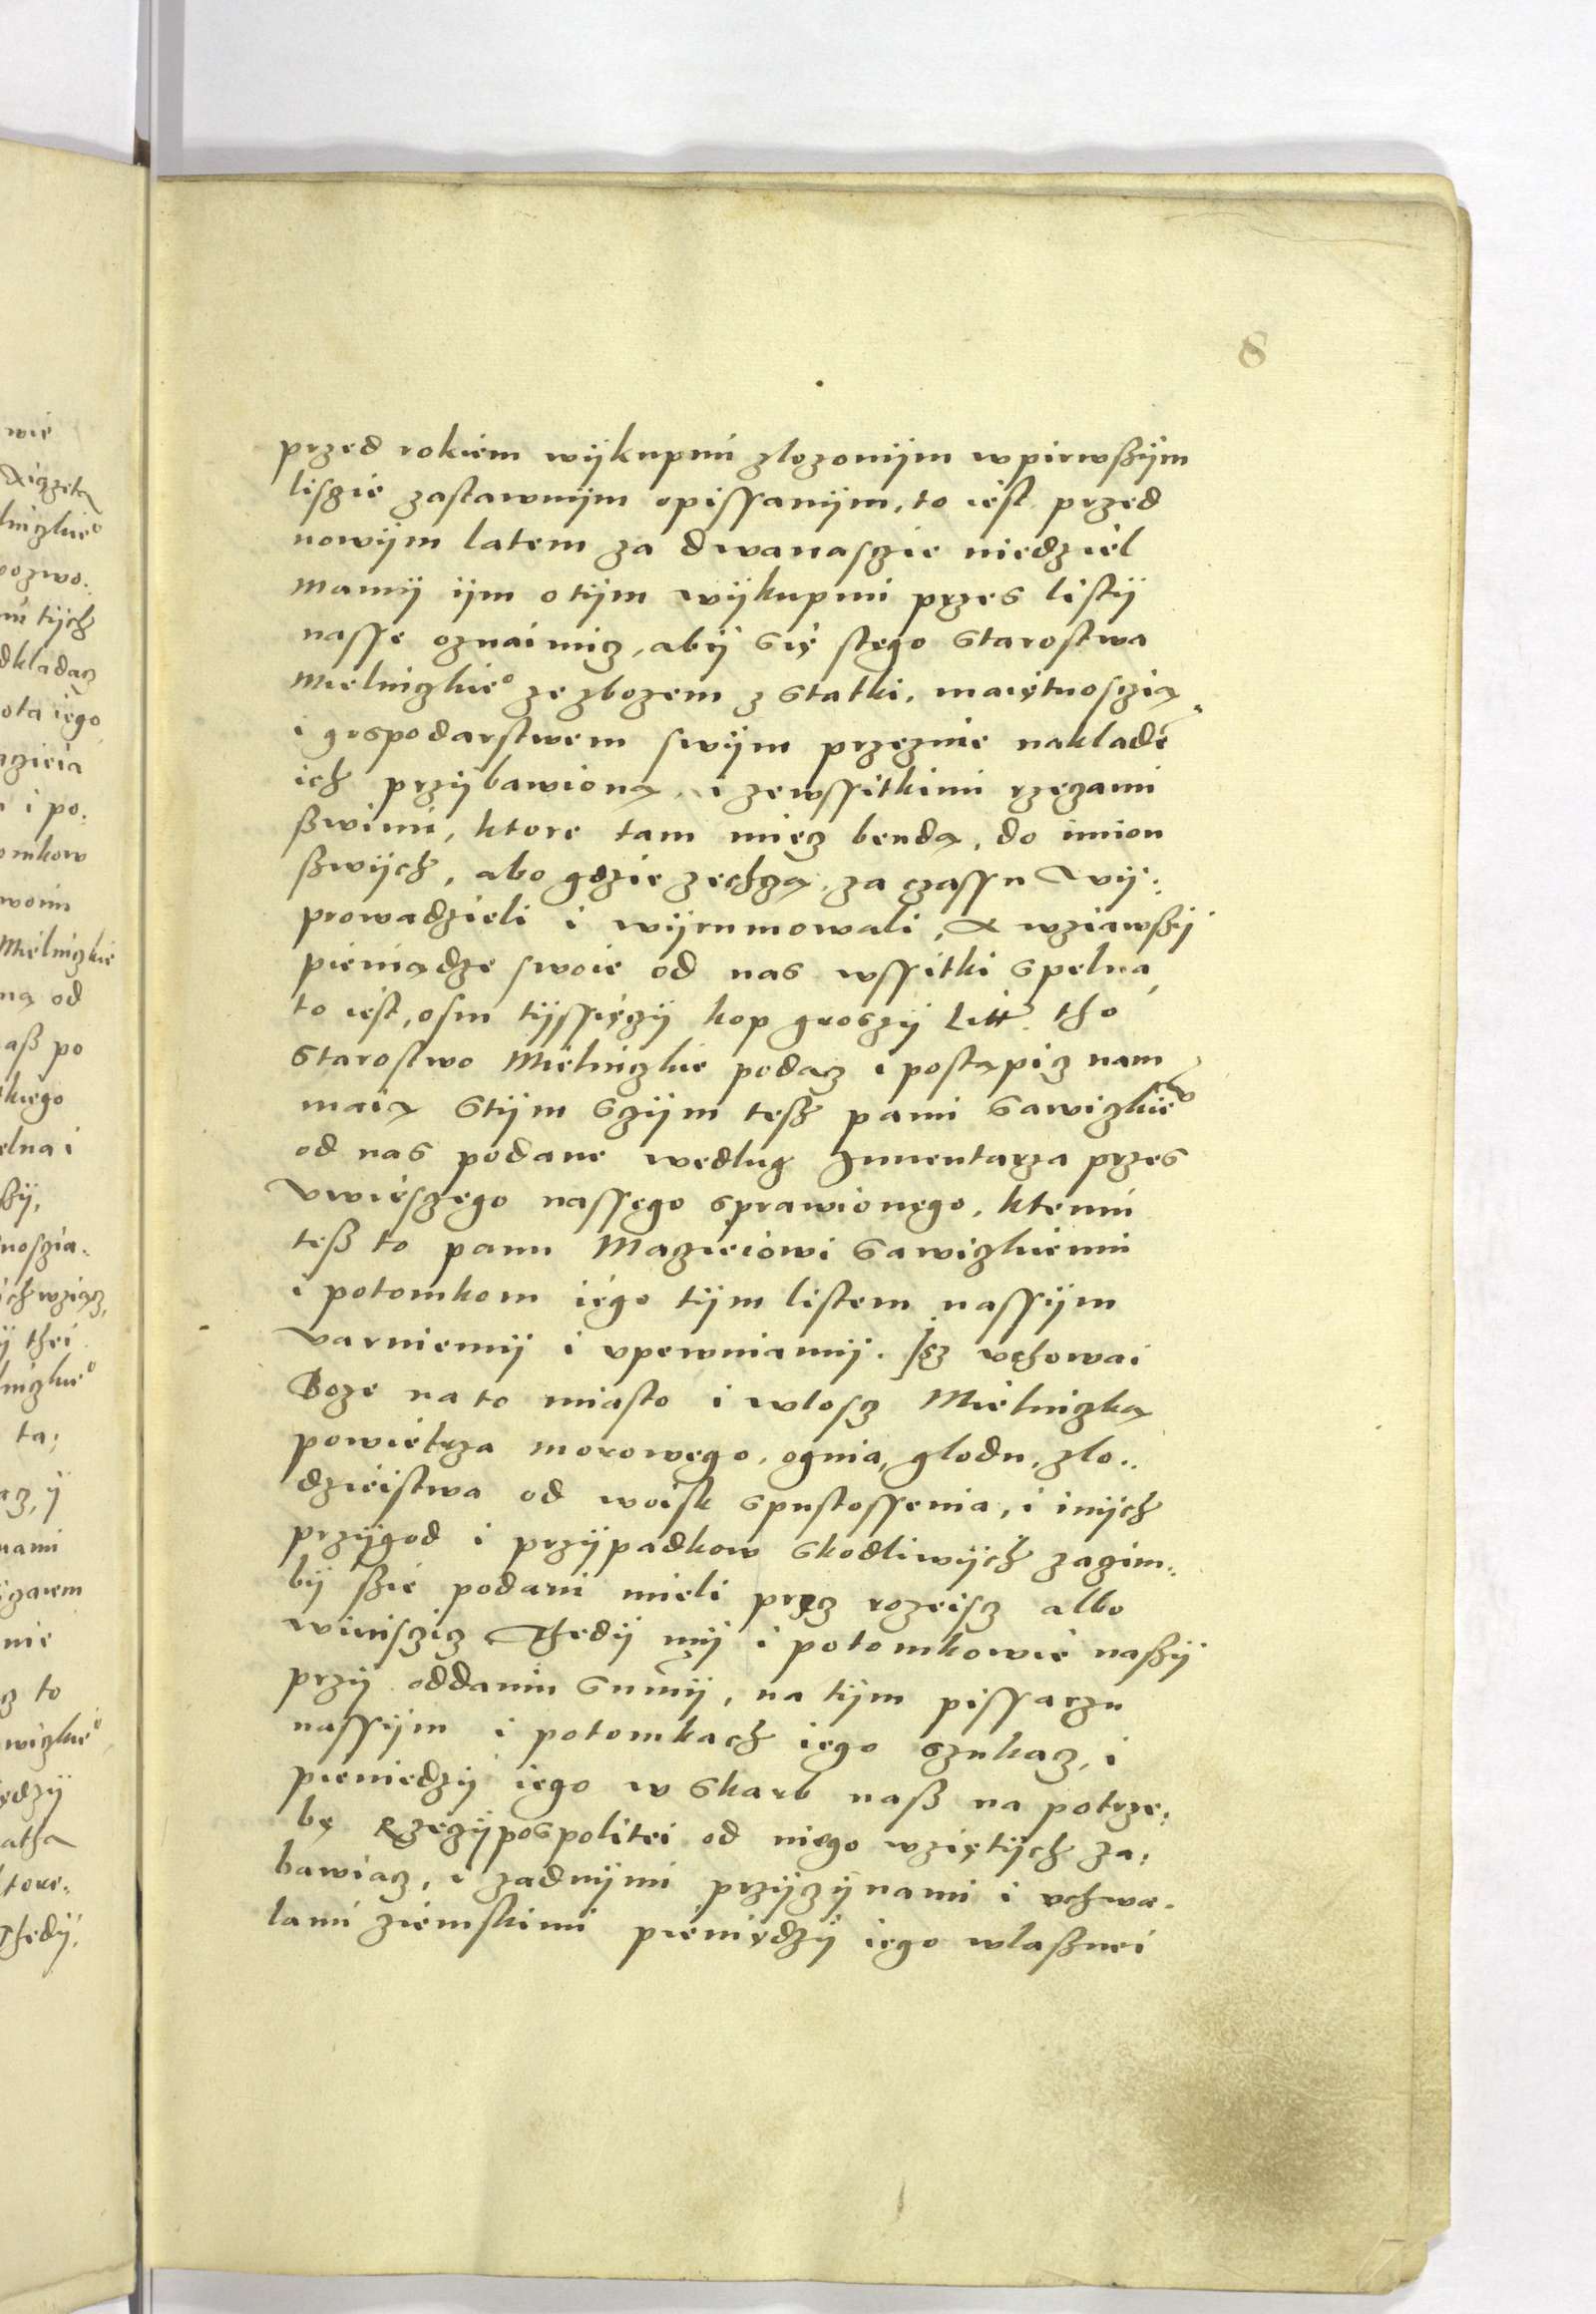 8
przed rokiem wÿkupnú zlozonÿm wpierwßÿm
liszie zastawnÿm opissanÿm, to iest przed
nowÿm latem za dwanaszie niedziel
mamÿ ÿm otÿm wÿkupni przes listÿ
nasse oznaimiz, abÿ się stego starostwa
Mielnizkie° ze zbozem z statki, maiętnoszią
i gospodarstwem swÿm przeznie naklade
ich przÿbawioną, i zewssitkimi rzezami
ßwimi, ktore tam miez bendą, do imion
ßwÿch, abo gdzie zechzą, za czassu wÿ:
prowadzieli i wÿrumowali, A wziawßÿ
pieniądze swoie od nas wssitki spelna,
to iest, osm tÿssięzÿ kop groszÿ Litt. tho
starostwo Mielnizkie podaz i postąpiz nam
maią stÿm szÿm teß panu Sawizkie°
od nas podane wedlug Inuentarza przes
vwieszego nassego sprawionego, ktemu
teß to panu Macieiowi Sawizkiemu
i potomkom iego tÿm listem nassÿm
varuiemÿ i vpewniamÿ. Jsz vchowai
Boze na to miasto i wlosz Mielnizką
powietrza morowego, ognia, glodu, zlo..
dzieistwa od woisk spustossenia, i inÿch
przÿgod i przÿpadkow skodliwÿch zagim..
bÿ ßie podani mieli precz rozeisz albo
winisziz Thedÿ mÿ i potomkowie naßÿ
przÿ oddaniu sumÿ, na tÿm pissarzu
nassÿm i potomkach iego szukaz, i
pieniedzÿ iego w skarb naß na potrze:
bę Rzezÿpospolitei od niego wziętÿch za:
bawiaz, i zadnÿmi przÿzÿnami i vchwa.
lami ziemskimi pieniędzÿ iego wlaßnei